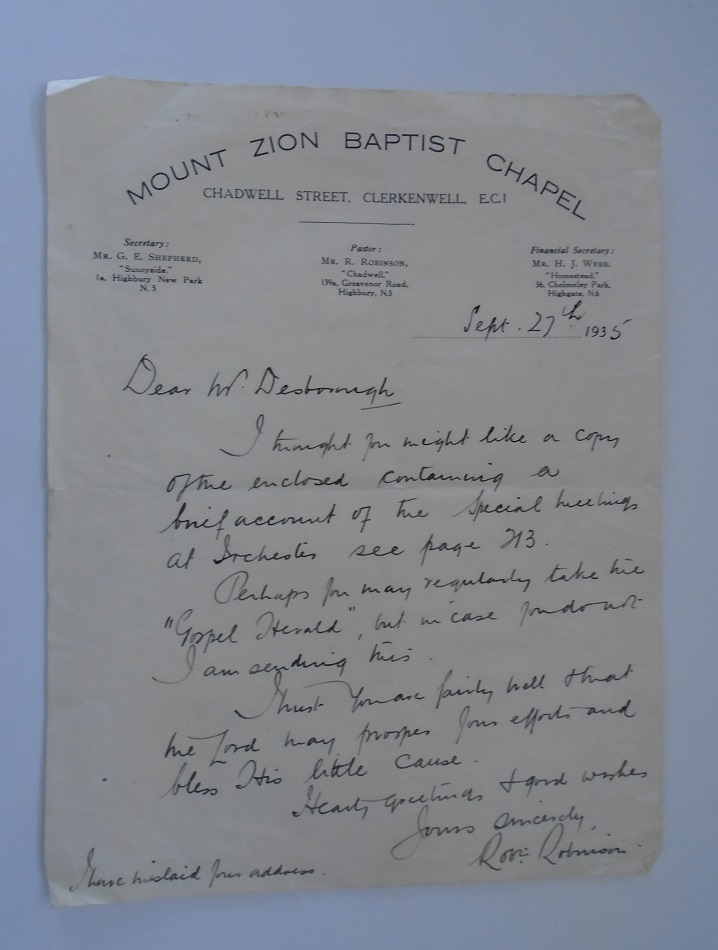 MOUNT ZION BAPTIST CHAPEL
CHADWELL STREET, CLERKENWELL, E.C.1
Secretary:
MR. G. E. SHEPHERD,
"Sunnyside,"
1a, Highbury New Park
N.5
Pastor:
MR. R. ROBINSON,
"Chadwell,"
139a, Grosvenor Road,
Highbury, N.5
Financial Secretary:
MR. H. J. WEBB,
"Homestead,"
36, Cholmeley Park,
Highgate, N.6
Sept. 27th 1935
Dear Mr. Desborough
I thought you might like a copy
of the enclosed containing a
brief account of the Special Meetings
at Irchester see page 213.
Perhaps you may regularly take the
"Gospel Herald", but in case you do not
I am sending this.
I trust you are fairly well & that
the Lord may prosper your efforts and
bless His little cause.
Hearty greetings & good wishes
Yours sincerely,
Robt. Robinson.
I have mislaid your address.